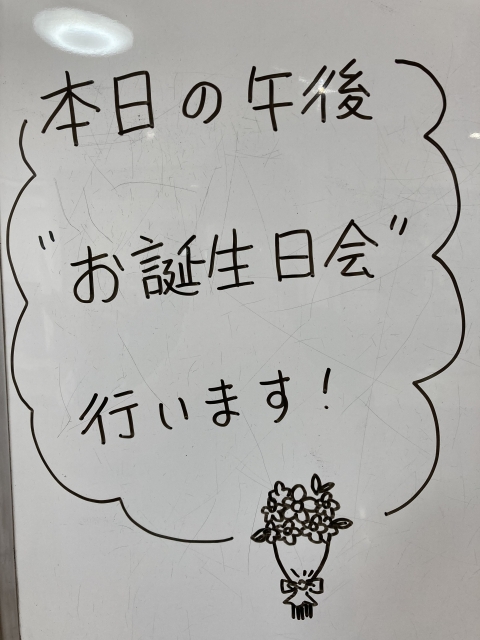 本日の午後
"お誕生日会"
行います!